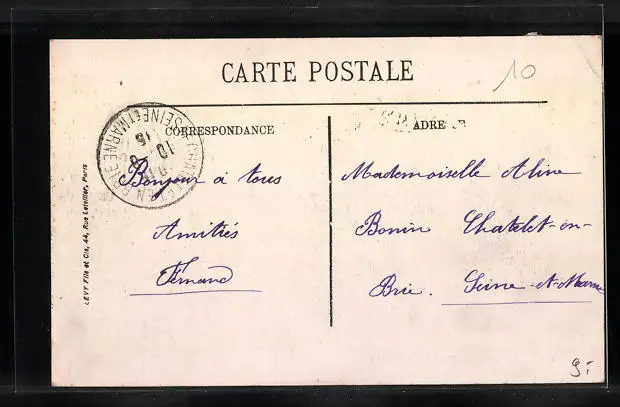 CARTE POSTALE
10
CORRESPONDANCE
ADRE
SEINE ET MARNE
Bonjour à tous
Amitiés
Fernand
Mademoiselle Aline
Bonin Chatelet-en-
Brie. Seine-et-Marne
LEVY Fils et Cie, 44, Rue Letellier, Paris
9.-